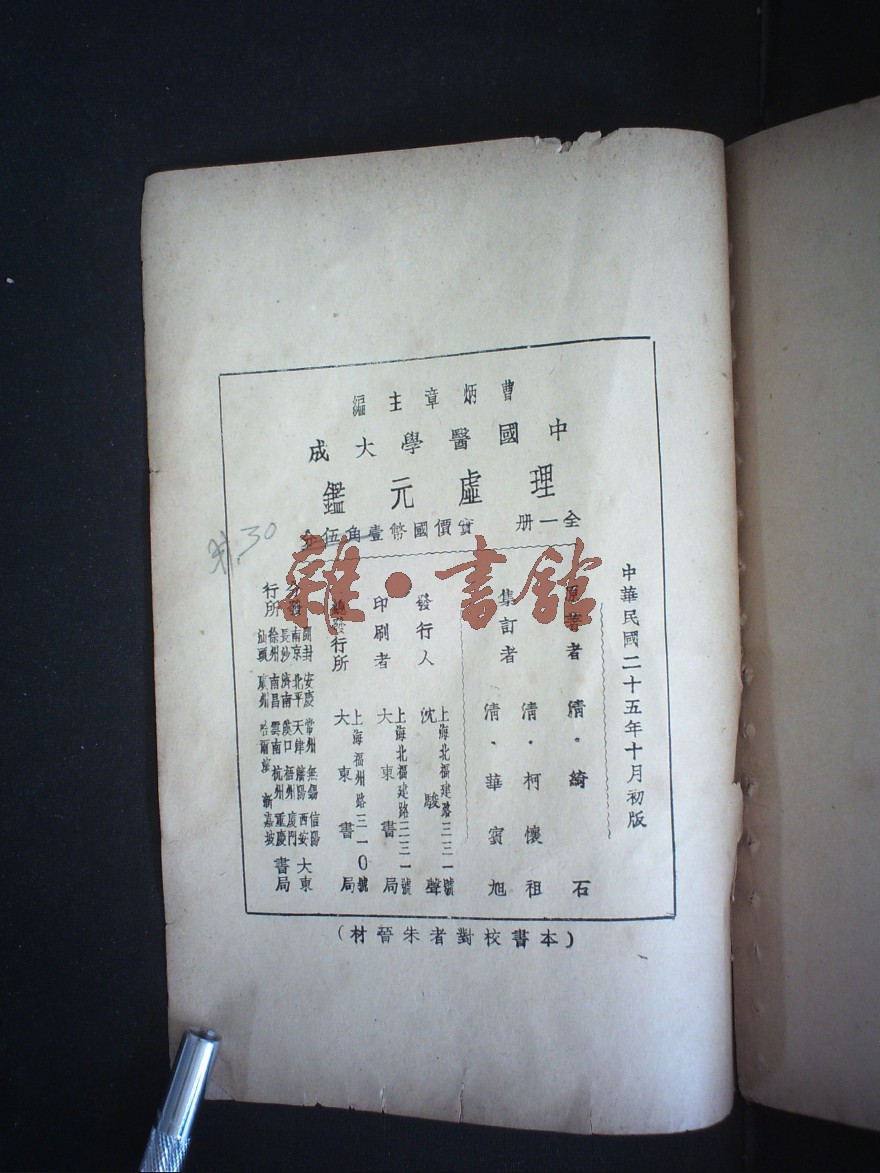 曹炳章主編
中國醫學大成
理虛元鑑
全一册 實價國幣壹角伍分
中華民國二十五年十月初版
原著者 清·綺石
集訂者 清·柯懷祖
清·華賓旭
發行人 沈駿聲
上海北福建路三三一號
印刷者 大東書局
上海北福建路三三一號
總發行所 大東書局
上海福州路三一〇號
分發行所
開封 安慶 常州 無錫 信陽
南京 北平 天津 瀋陽 西安
長沙 濟南 漢口 福州 廈門
徐州 南昌 雲南 杭州 重慶
汕頭 廣州 哈爾濱 新嘉坡
大東書局
(本書校對者朱晉材)
雜·書館